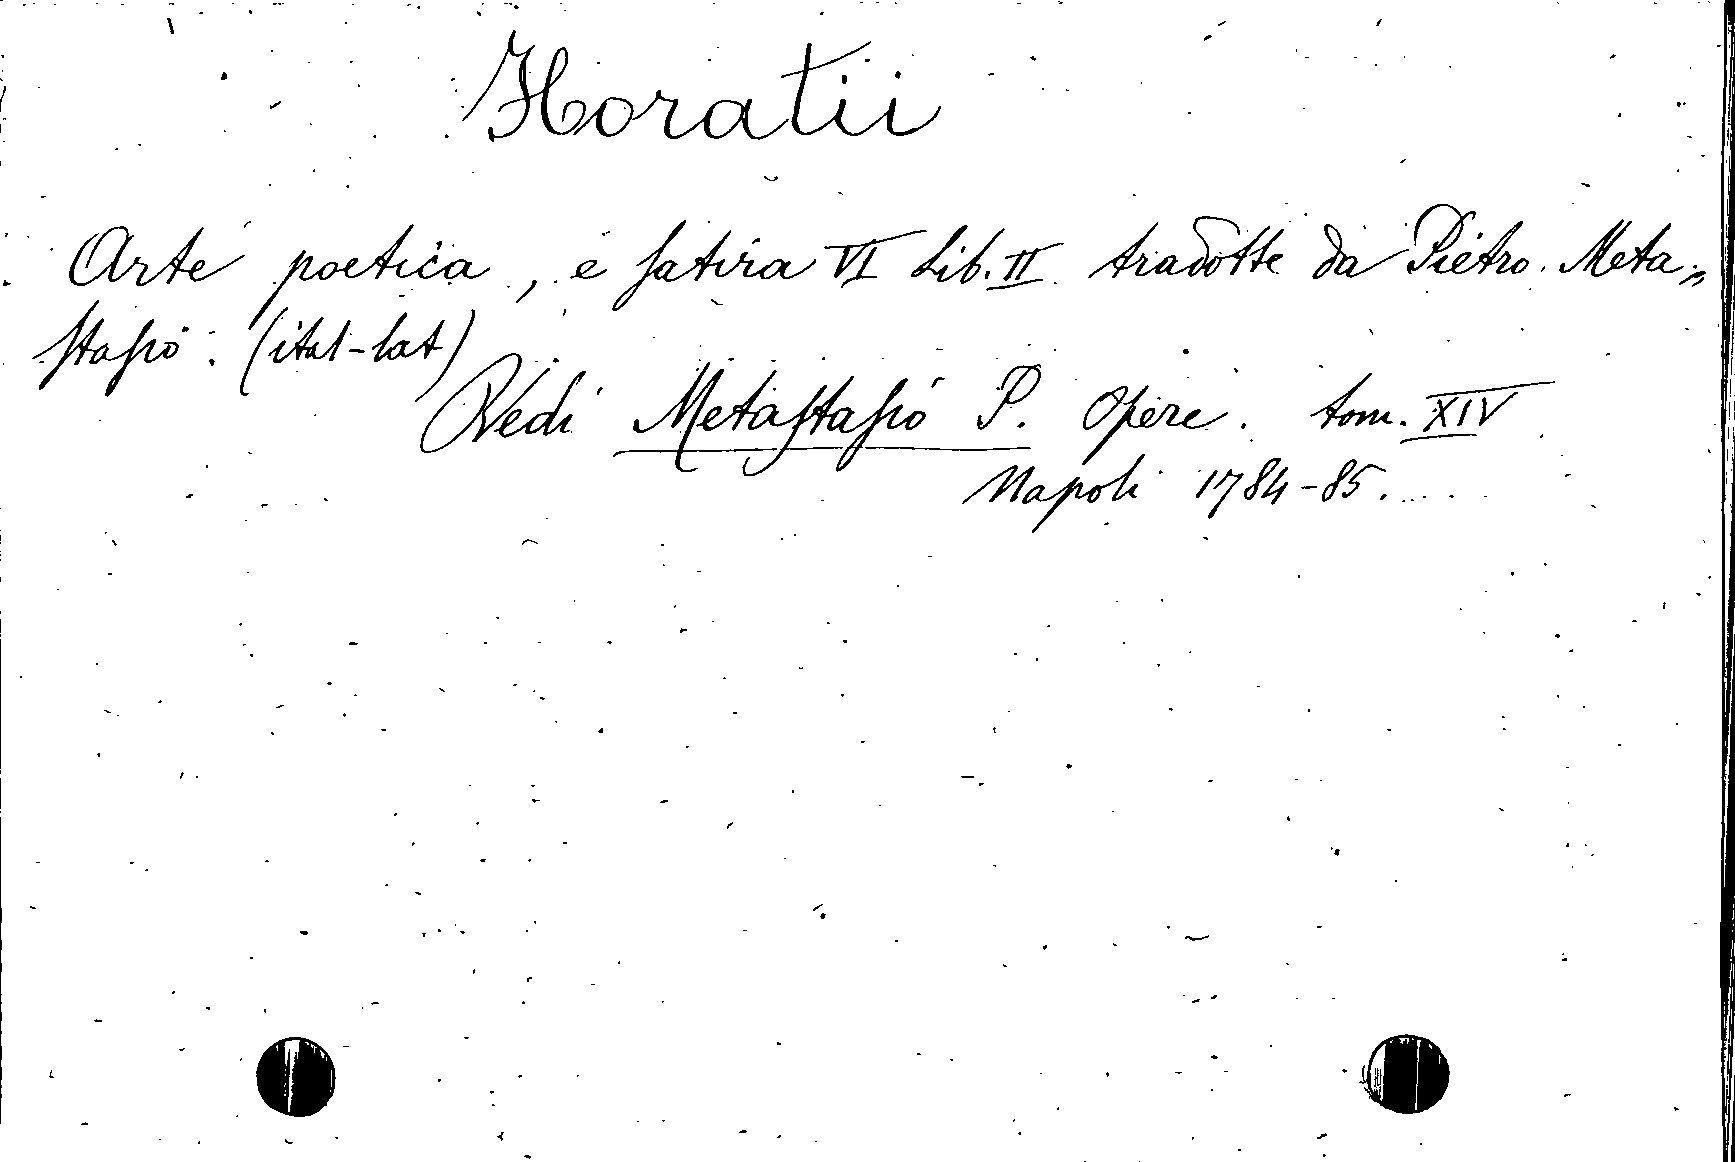 Horatii
Arte poetica, e satira VI Lib. II tradotte da Pietro Meta=
stasio. (ital-lat)
Vedi Metastasio P. Opere. tom. XIV
Napoli 1784-85.